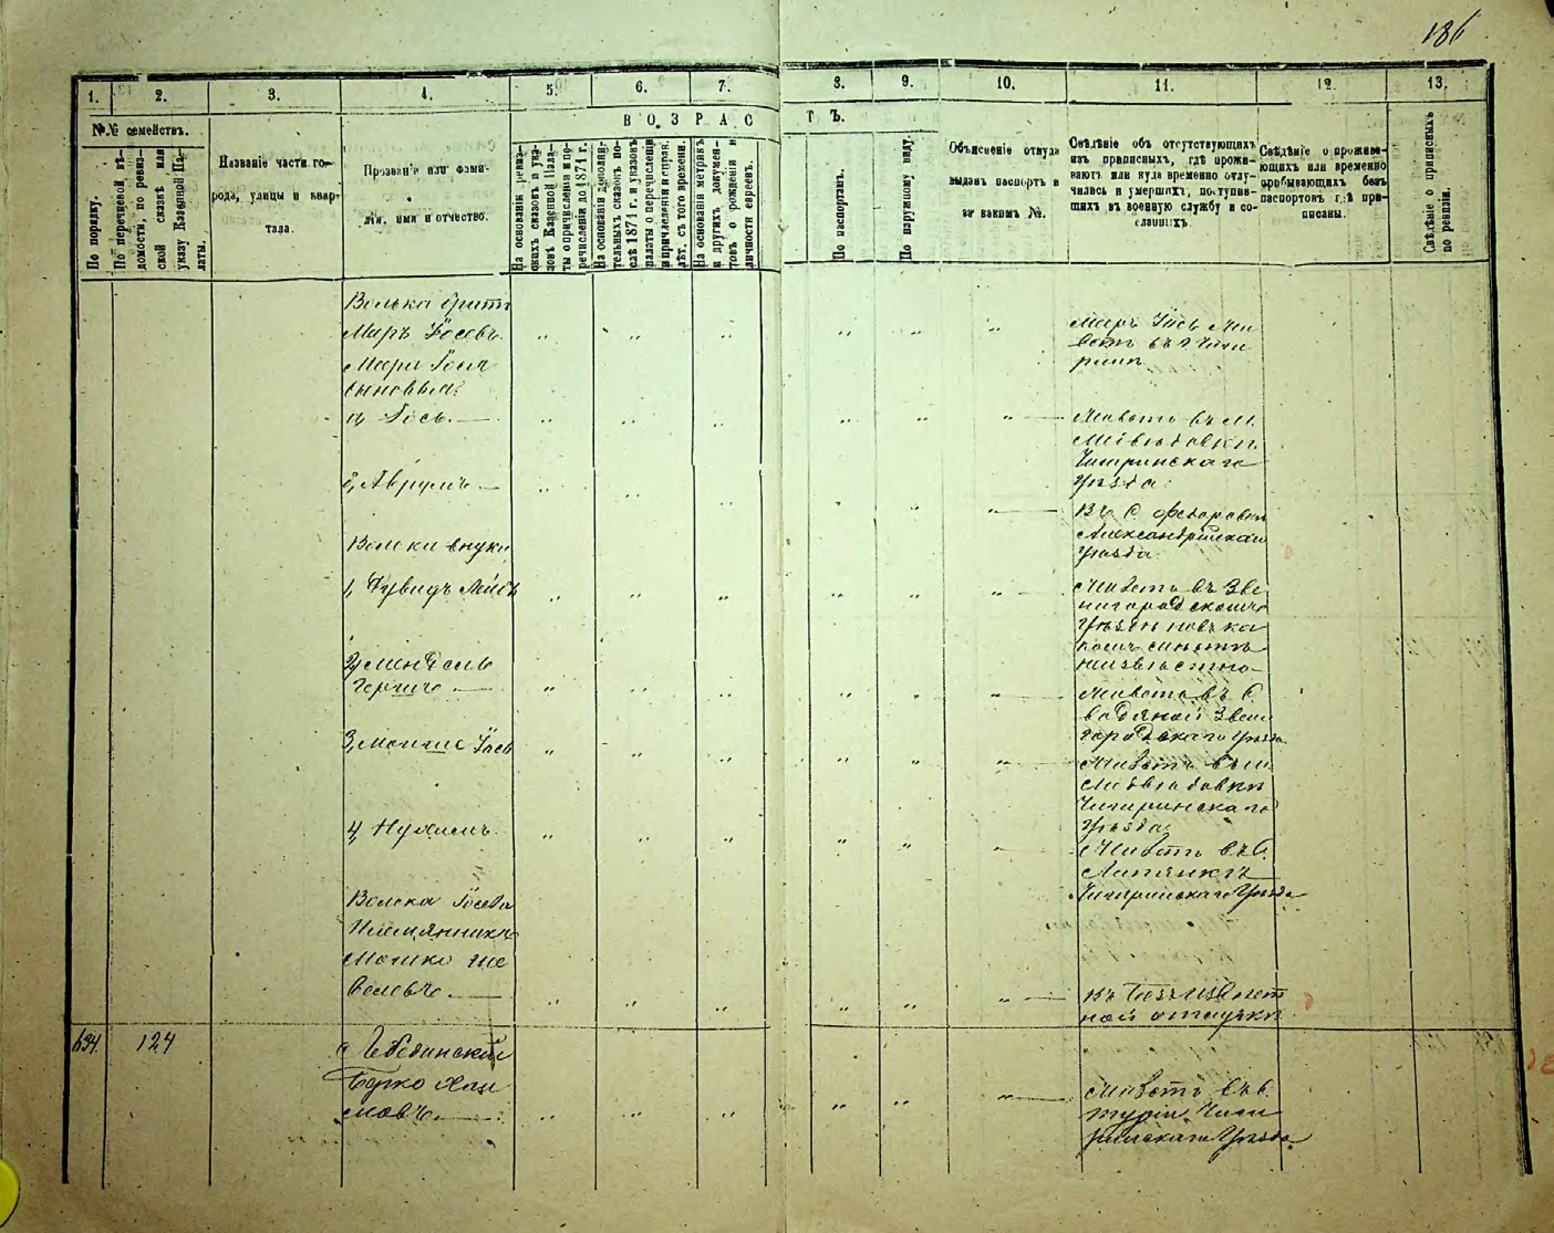 186
1. 2. 3. 4. 5. 6. 7. 8. 9. 10. 11. 12. 13.
№№ семействъ.
ВОЗРАСТЪ.
По порядку.
По перечневой вѣ-
домости, по ревиз-
ской сказкѣ или
указу Казенной Па-
латы.
Названіе части го-
рода, улицы и квар-
тала.
Прозваніе или фами-
лія, имя и отчество.
На основаніи ревиз-
скихъ сказокъ и ука-
зовъ Казенной Пала-
ты о причисленіи и пе-
речисленіи до 1874 г.
На основаніи дополни-
тельныхъ сказокъ по-
слѣ 1874 г. и указовъ
палаты о перечисленіи
и причисленіи и справ.
лѣт. съ того времени.
На основаніи метрикъ
и другихъ докумен-
товъ о рожденіи и
личности евреевъ.
По паспортамъ.
По наружному виду.
Объясненіе откуда
выданъ паспортъ и
за какимъ №.
Свѣдѣніе объ отсутствующихъ
изъ приписныхъ, гдѣ прожи-
ваютъ или куда временно отлу-
чились и умершихъ, поступив-
шихъ въ военную службу и со-
сланныхъ.
Свѣдѣніе о прожива-
ющихъ или временно
прибывающихъ безъ
паспортовъ гдѣ при-
писаны.
Свѣдѣніе о приписныхъ
по ревизіи.
Волька братъ
Меръ Іосевъ.
Мера Іося
сыновья:
1, Іось.
Живетъ въ М.
Медведовкѣ
Чигиринскаго
Уѣзда.
2, Аврумъ
Въ С Федоровки
Александрійскаго
Уѣзда
Вольки внуки
1, Дувидъ Лейбъ
Живетъ въ Зве
нигородскомъ
Уѣздѣ но въ ка
комъ
неизвѣстно
2, Мендель
Гершъ
Живетъ въ С
Водяной Звени
городскаго Уѣзда
3, Мошко Іось
Живетъ въ М.
Медведовкѣ
Чигиринскаго
Уѣзда
4, Нухимъ
Живетъ въ С.
Чигиринскаго Уѣзда
Волька Іосева
Племянникъ
Мошко Ше
велевъ
Въ безызвѣст
ной отлучкѣ
634. 124
Лебединскій
Берко Хаи
мовъ
Живетъ въ С.
Туріи Чиги
ринскаго Уѣзда.